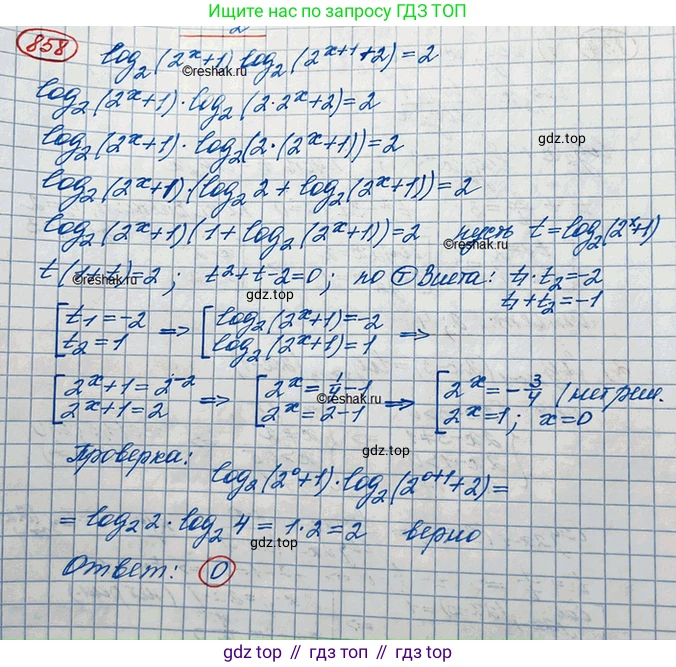 Больше решений по запросу ГДЗ ТОП
2
858 log₂(2ˣ+1)·log₂(2ˣ⁺¹+2)=2
©reshak.ru
log₂(2ˣ+1)·log₂(2·2ˣ+2)=2
log₂(2ˣ+1)·log₂(2·(2ˣ+1))=2
gdz.top
log₂(2ˣ+1)·(log₂2+log₂(2ˣ+1))=2
log₂(2ˣ+1)(1+log₂(2ˣ+1))=2 пусть t=log₂(2ˣ+1)
©reshak.ru
t(1+t)=2; t²+t-2=0; по Т Виета: t₁·t₂=-2
©reshak.ru
t₁+t₂=-1
gdz.top
[t₁=-2 ⇒ [log₂(2ˣ+1)=-2 ⇒
t₂=1 log₂(2ˣ+1)=1
[2ˣ+1=2⁻² ⇒ [2ˣ=1/4-1 ⇒ [2ˣ=-3/4 (нет реш.
2ˣ+1=2 2ˣ=2-1 2ˣ=1; x=0
©reshak.ru
Проверка:
gdz.top
log₂(2⁰+1)·log₂(2⁰⁺¹+2)=
=log₂2·log₂4=1·2=2 верно
gdz.top
Ответ: 0
gdz.top // гдз топ // gdz.top